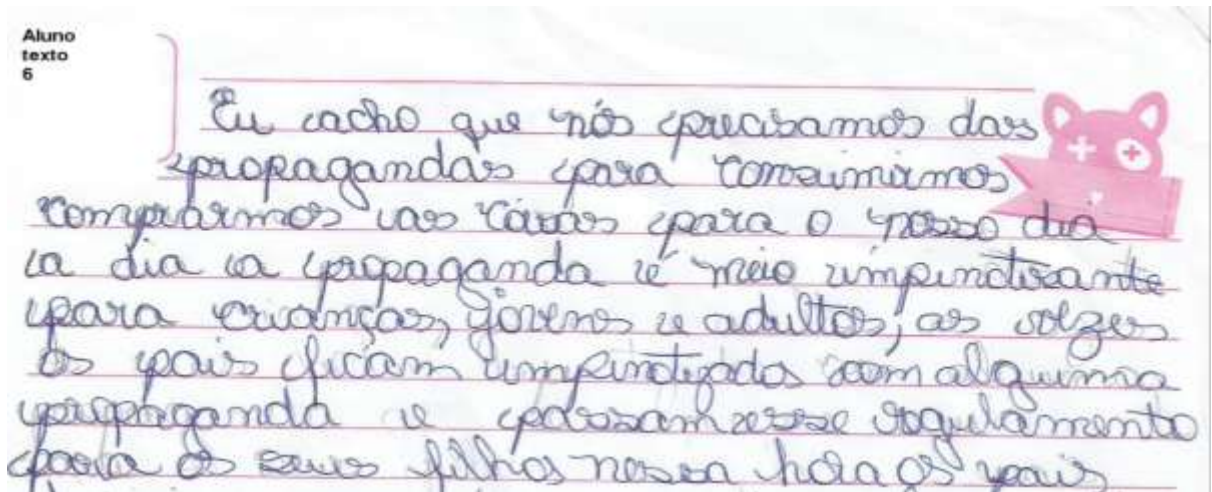 Aluno
texto
6
Eu acho que nós precisamos das
propagandas para consumirmos
comprarmos as coisas para o nosso dia
a dia a propaganda é meio impinotizante
para crianças, jovens e adultos, as vezes
os pais ficam impinotizados com alguma
propaganda e passam esse regulamento
para os seus filhos nessa hora os pais